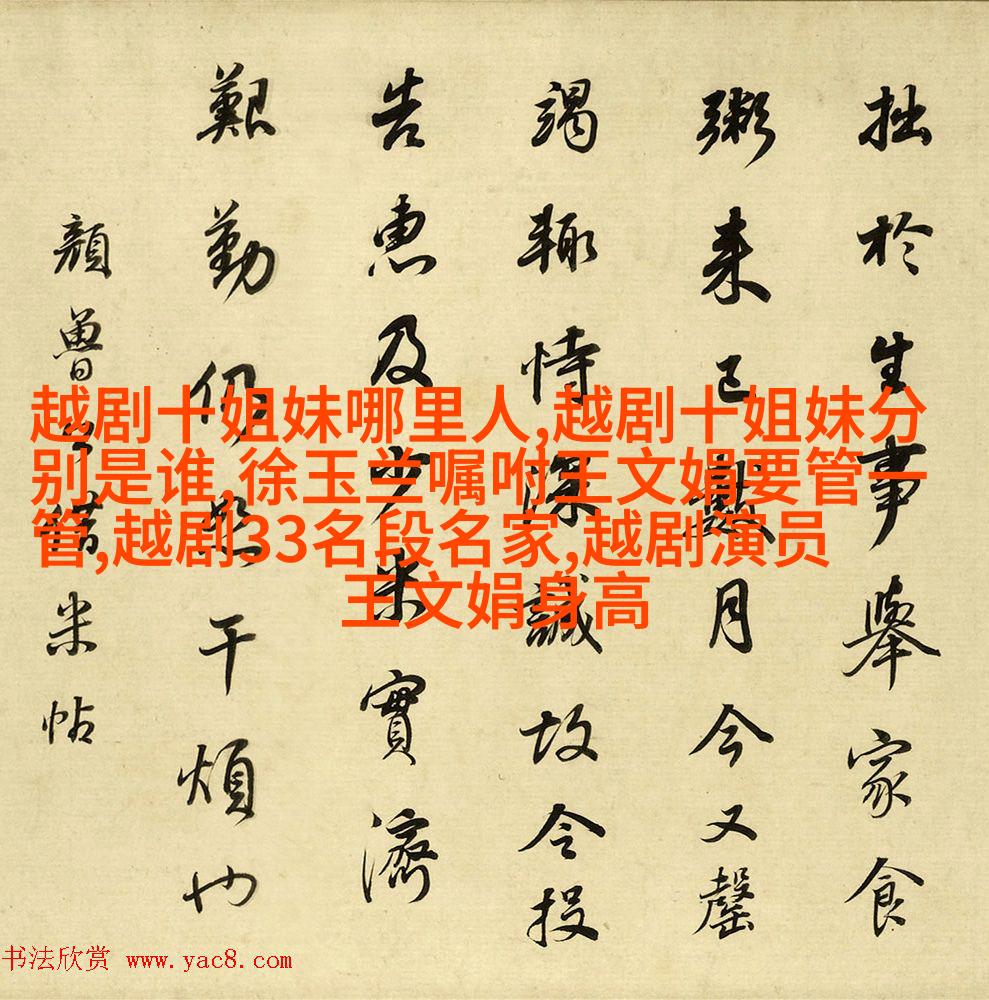 拙於生事舉家食
粥来已數月今又罄
竭輙恃深誠故令投
告惠及少米實濟
艱勤仍恕干煩也
顔魯公米帖
越剧十姐妹哪里人,越剧十姐妹分
别是谁,徐玉兰嘱咐王文娟要管一
管,越剧33名段名家,越剧演员
王文娟身高
书法欣赏 www.yac8.com